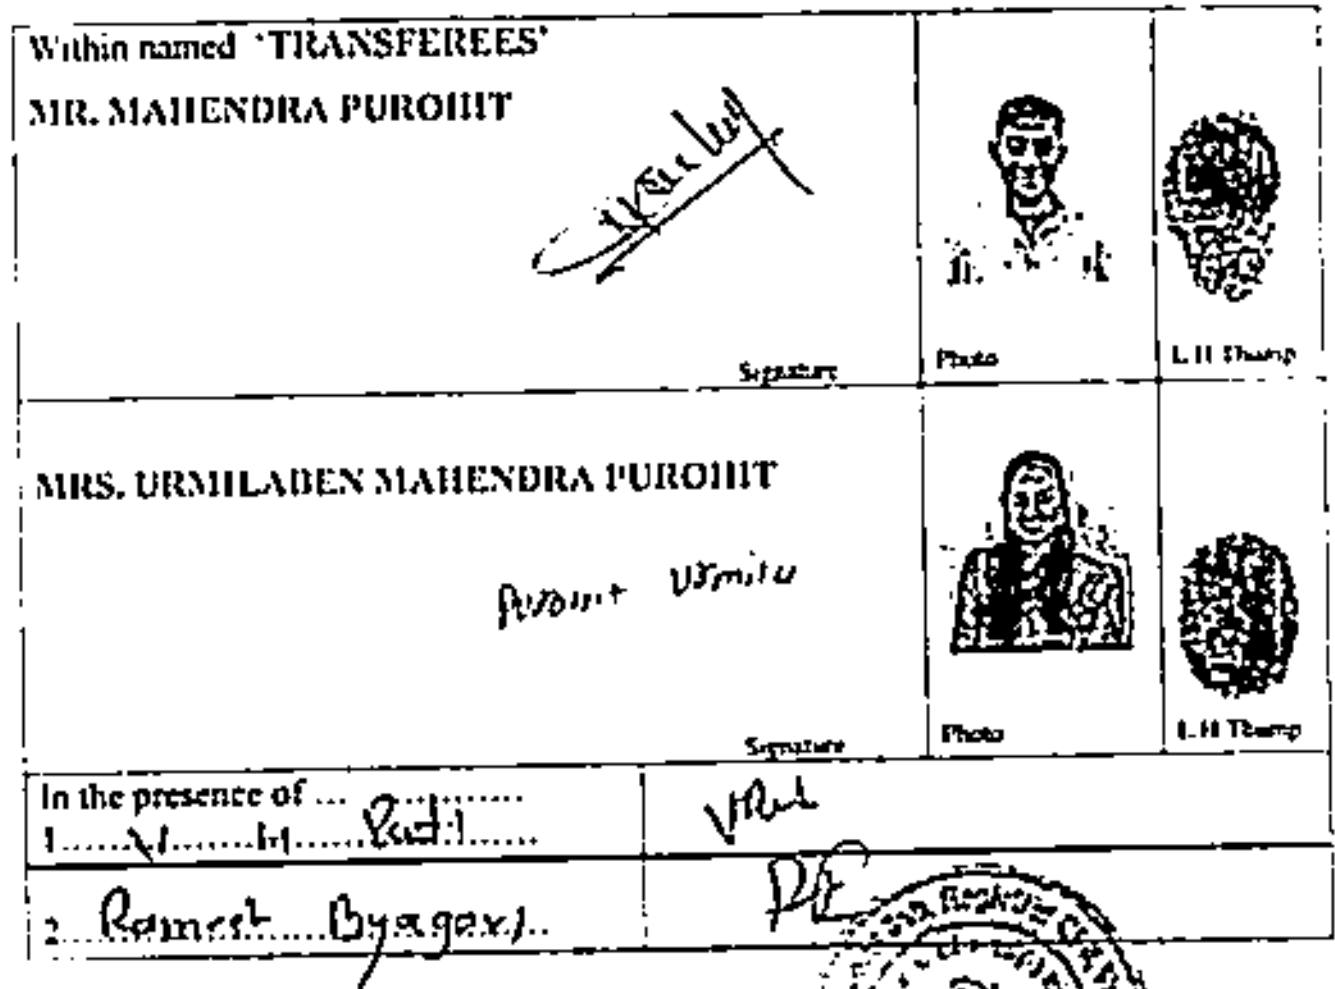 Within named 'TRANSFEREES'
MR. MAHENDRA PUROHIT
Signature
Photo
L H Thump
MRS. URMILABEN MAHENDRA PUROHIT
Purohit Urmila
Signature
Photo
L H Thump
In the presence of ...
1......V.......H......Patil......
2...Ramesh....Byagari..